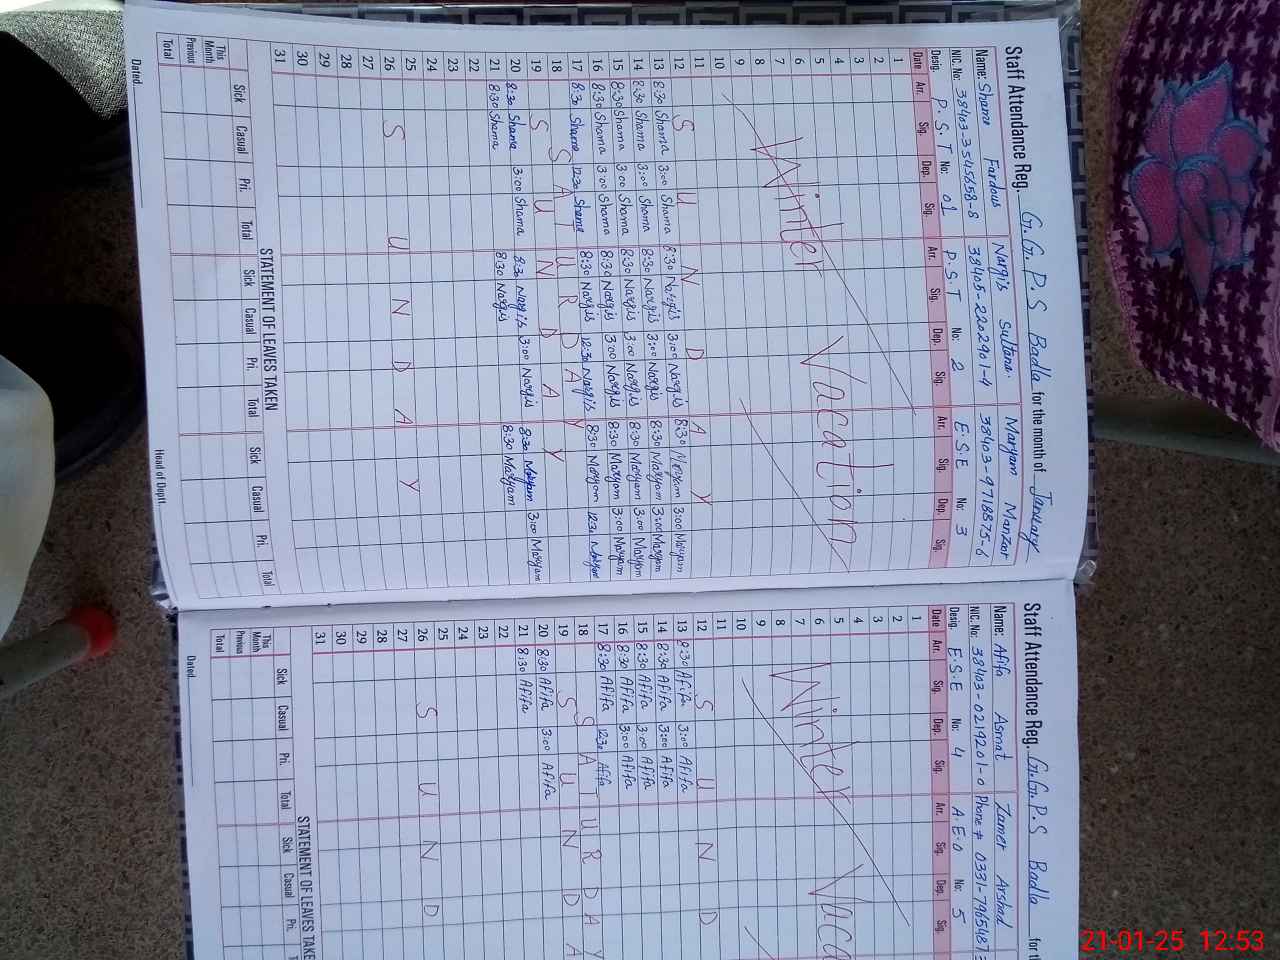 Staff Attendance Reg. G.G.P.S Badla for the month of January
Name: Shama Fardous Nargis Sultana. Maryam Manzoor
NIC. No: 38403-3545658-8 38405-2202901-4 38403-9718875-6
Desig. P.S.T No: 01 P.S.T No: 2 E.S.E No: 3
Date Arr. Sig. Dep. Sig. Arr. Sig. Dep. Sig. Arr. Sig. Dep. Sig.
1
2
3
4
5
6
7
8
9
10
Winter Vacation
11
12 SUNDAY
13 8:30 Shama 3:00 Shama 8:30 Nargis 3:00 Nargis 8:30 Maryam 3:00 Maryam
14 8:30 Shama 3:00 Shama 8:30 Nargis 3:00 Nargis 8:30 Maryam 3:00 Maryam
15 8:30 Shama 3:00 Shama 8:30 Nargis 3:00 Nargis 8:30 Maryam 3:00 Maryam
16 8:30 Shama 3:00 Shama 8:30 Nargis 3:00 Nargis 8:30 Maryam 3:00 Maryam
17 8:30 Shama 12:30 Shama 8:30 Nargis 12:30 Nargis 8:30 Maryam 12:30 Maryam
18 SATURDAY
19 SUNDAY
20 8:30 Shama 3:00 Shama 8:30 Nargis 3:00 Nargis 8:30 Maryam 3:00 Maryam
21 8:30 Shama 8:30 Nargis 8:30 Maryam
22
23
24
25
26 SUNDAY
27
28
29
30
31
STATEMENT OF LEAVES TAKEN
Sick Casual Pri. Total Sick Casual Pri. Total Sick Casual Pri. Total
This Month
Previous
Total
Dated Head of Deptt.
Staff Attendance Reg. G.G.P.S Badla for t
Name: Afifa Asmat Zamer Arshad
NIC. No: 38403-0219201-0 Phone # 0331-7965487
Desig. E.S.E No: 4 A.E.O No: 5
Date Arr. Sig. Dep. Sig. Arr. Sig. Dep. Sig.
1
2
3
4
5
6
7
8
9
10
Winter Vaca
11
12 SUND
13 8:30 Afifa 3:00 Afifa
14 8:30 Afifa 3:00 Afifa
15 8:30 Afifa 3:00 Afifa
16 8:30 Afifa 3:00 Afifa
17 8:30 Afifa 12:30 Afifa
18 SATURDAY
19 SUNDA
20 8:30 Afifa 3:00 Afifa
21 8:30 Afifa
22
23
24
25
26 SUND
27
28
29
30
31
STATEMENT OF LEAVES TAKE
Sick Casual Pri. Total Sick Casual Pri.
This Month
Previous
Total
Dated
21-01-25 12:53